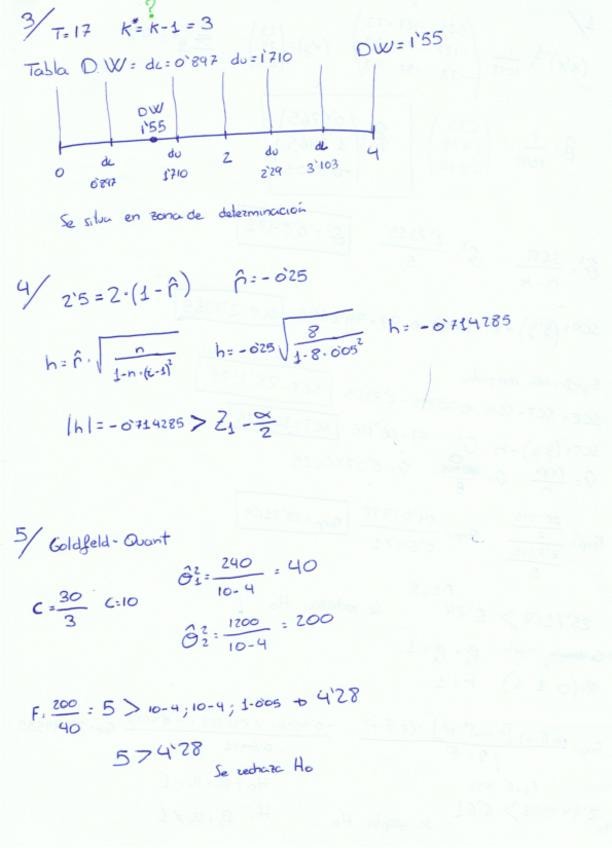 ?
3/ T=17 K*=K-1=3
Tabla D.W= dL=0'897 du=1'710 DW=1'55
DW
1'55
0 dL du 2 du dL 4
0'897 1'710 2'29 3'103
Se situa en zona de determinación
4/ 2'5=2·(1-r̂) r̂=-0'25
h=r̂·√(n/(1-n·(i-1)²)) h=-0'25√(8/(1-8·0'05²)) h=-0'714285
|h|=-0'714285 > Z1-α/2
5/ Goldfeld-Quant
C=30/3 C=10 σ̂₁²=240/(10-4)=40
σ̂₂²=1200/(10-4)=200
F=200/40=5 > 10-4;10-4;1-0'05 → 4'28
5>4'28
Se rechaza Ho